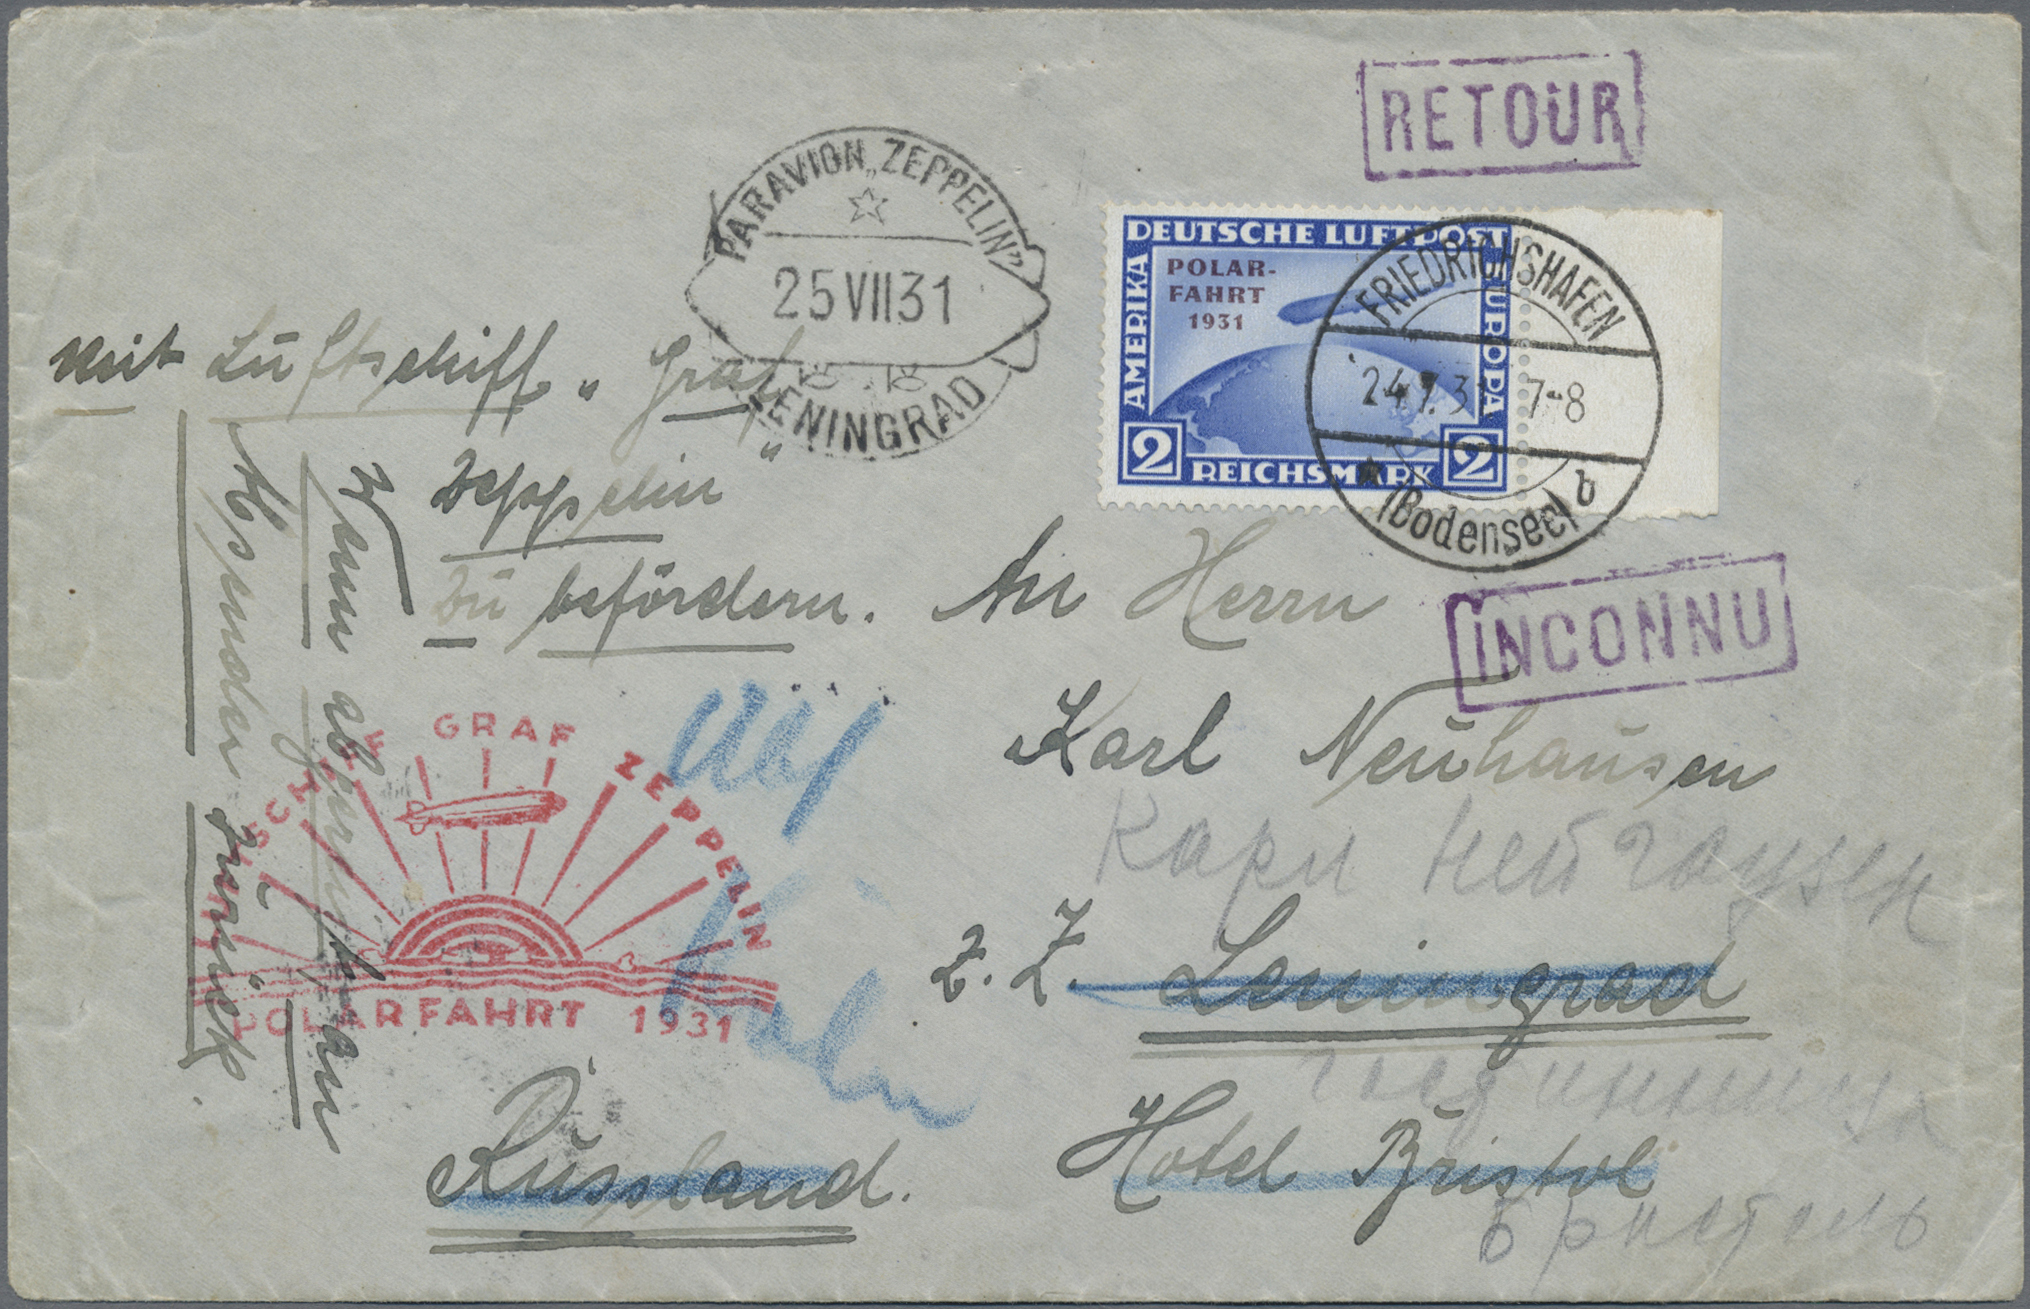 RETOUR
PARAVION „ZEPPELIN”
25 VII 31
LENINGRAD
DEUTSCHE LUFTPOST
AMERIKA
EUROPA
POLAR-
FAHRT
1931
2 REICHSMARK 2
FRIEDRICHSHAFEN
24.7.31 7-8
* (Bodensee) b
INCONNU
Mit Luftschiff „Graf
Zeppelin"
zu befördern.
Wenn abgereist an
Absender zurück
An Herrn
Karl Neuhausen
Карл Нейгаузен
z. Z. Leningrad
гостинница
Hotel Bristol
Бристель
Russland.
LUFTSCHIFF GRAF ZEPPELIN
POLARFAHRT 1931
Köln